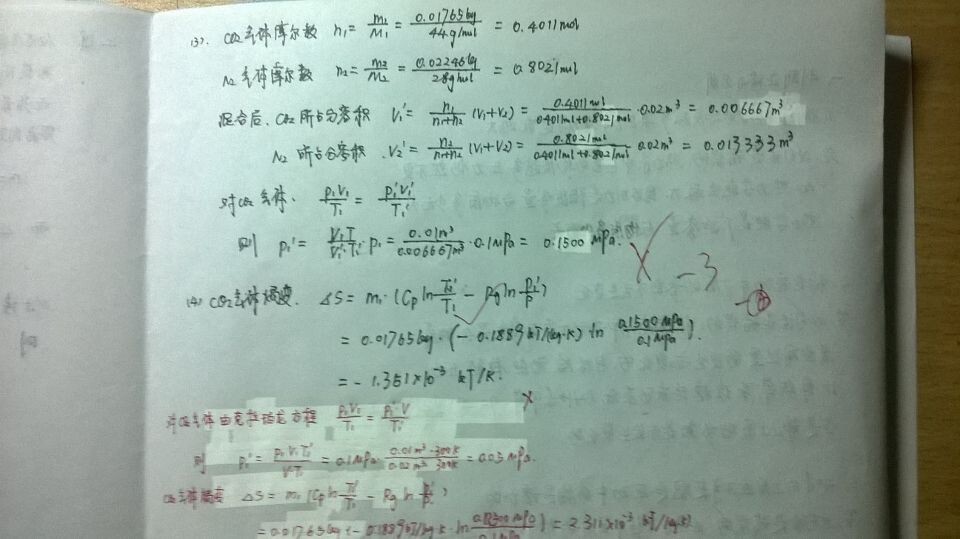 (3). CO2气体摩尔数 n1 = m1/M1 = 0.01765kg/44g/mol = 0.4011mol
N2气体摩尔数 n2 = m2/M2 = 0.02246kg/28g/mol = 0.8021mol
混合后、CO2所占分容积 V1' = n1/(n1+n2) (V1+V2) = 0.4011mol/(0.4011mol+0.8021mol) · 0.02m³ = 0.006667m³
N2所占分容积. V2' = n2/(n1+n2) (V1+V2) = 0.8021mol/(0.4011mol+0.8021mol) · 0.02m³ = 0.013333m³
对CO2气体. P1V1/T1 = P1'V1'/T1'
则 P1' = V1T/V1'T1 · P1 = 0.01m³/0.006667m³ · 0.1MPa = 0.1500MPa. × -3
(4) CO2气体熵变. ΔS = m1·(Cp ln T1'/T1 - Rg ln P1'/P)
= 0.01765kg·(-0.1889kJ/(kg·K) ln 0.1500MPa/0.1MPa).
= -1.351×10⁻³ kJ/K. ×
对CO2气体由克拉珀龙方程 P1V1/T1 = P1'V/T1'
则 P1' = P1V1T1'/VT1 = 0.1MPa·0.01m³·300K/0.02m³·300K = 0.05MPa.
CO2气体熵变 ΔS = m1(Cp ln T1'/T1 - Rg ln P1'/P1)
= 0.01765kg(-0.1889kJ/kg·K·ln 0.1MPa) = 2.311×10⁻³ kJ/(kg·K)